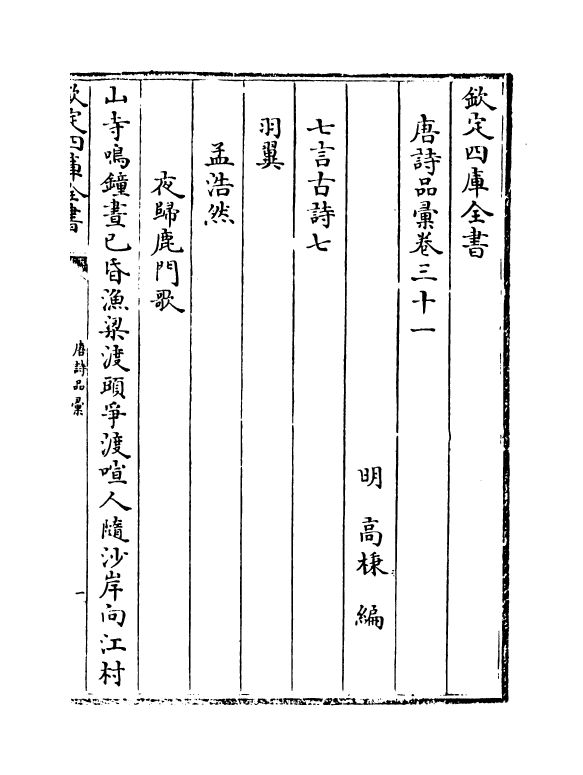 欽定四庫全書
唐詩品彚卷三十一
明 高棅 編
七言古詩七
羽翼
孟浩然
夜歸鹿門歌
山寺鳴鐘晝已昏漁梁渡頭爭渡喧人隨沙岸向江村
欽定四庫全書
唐詩品彚
一